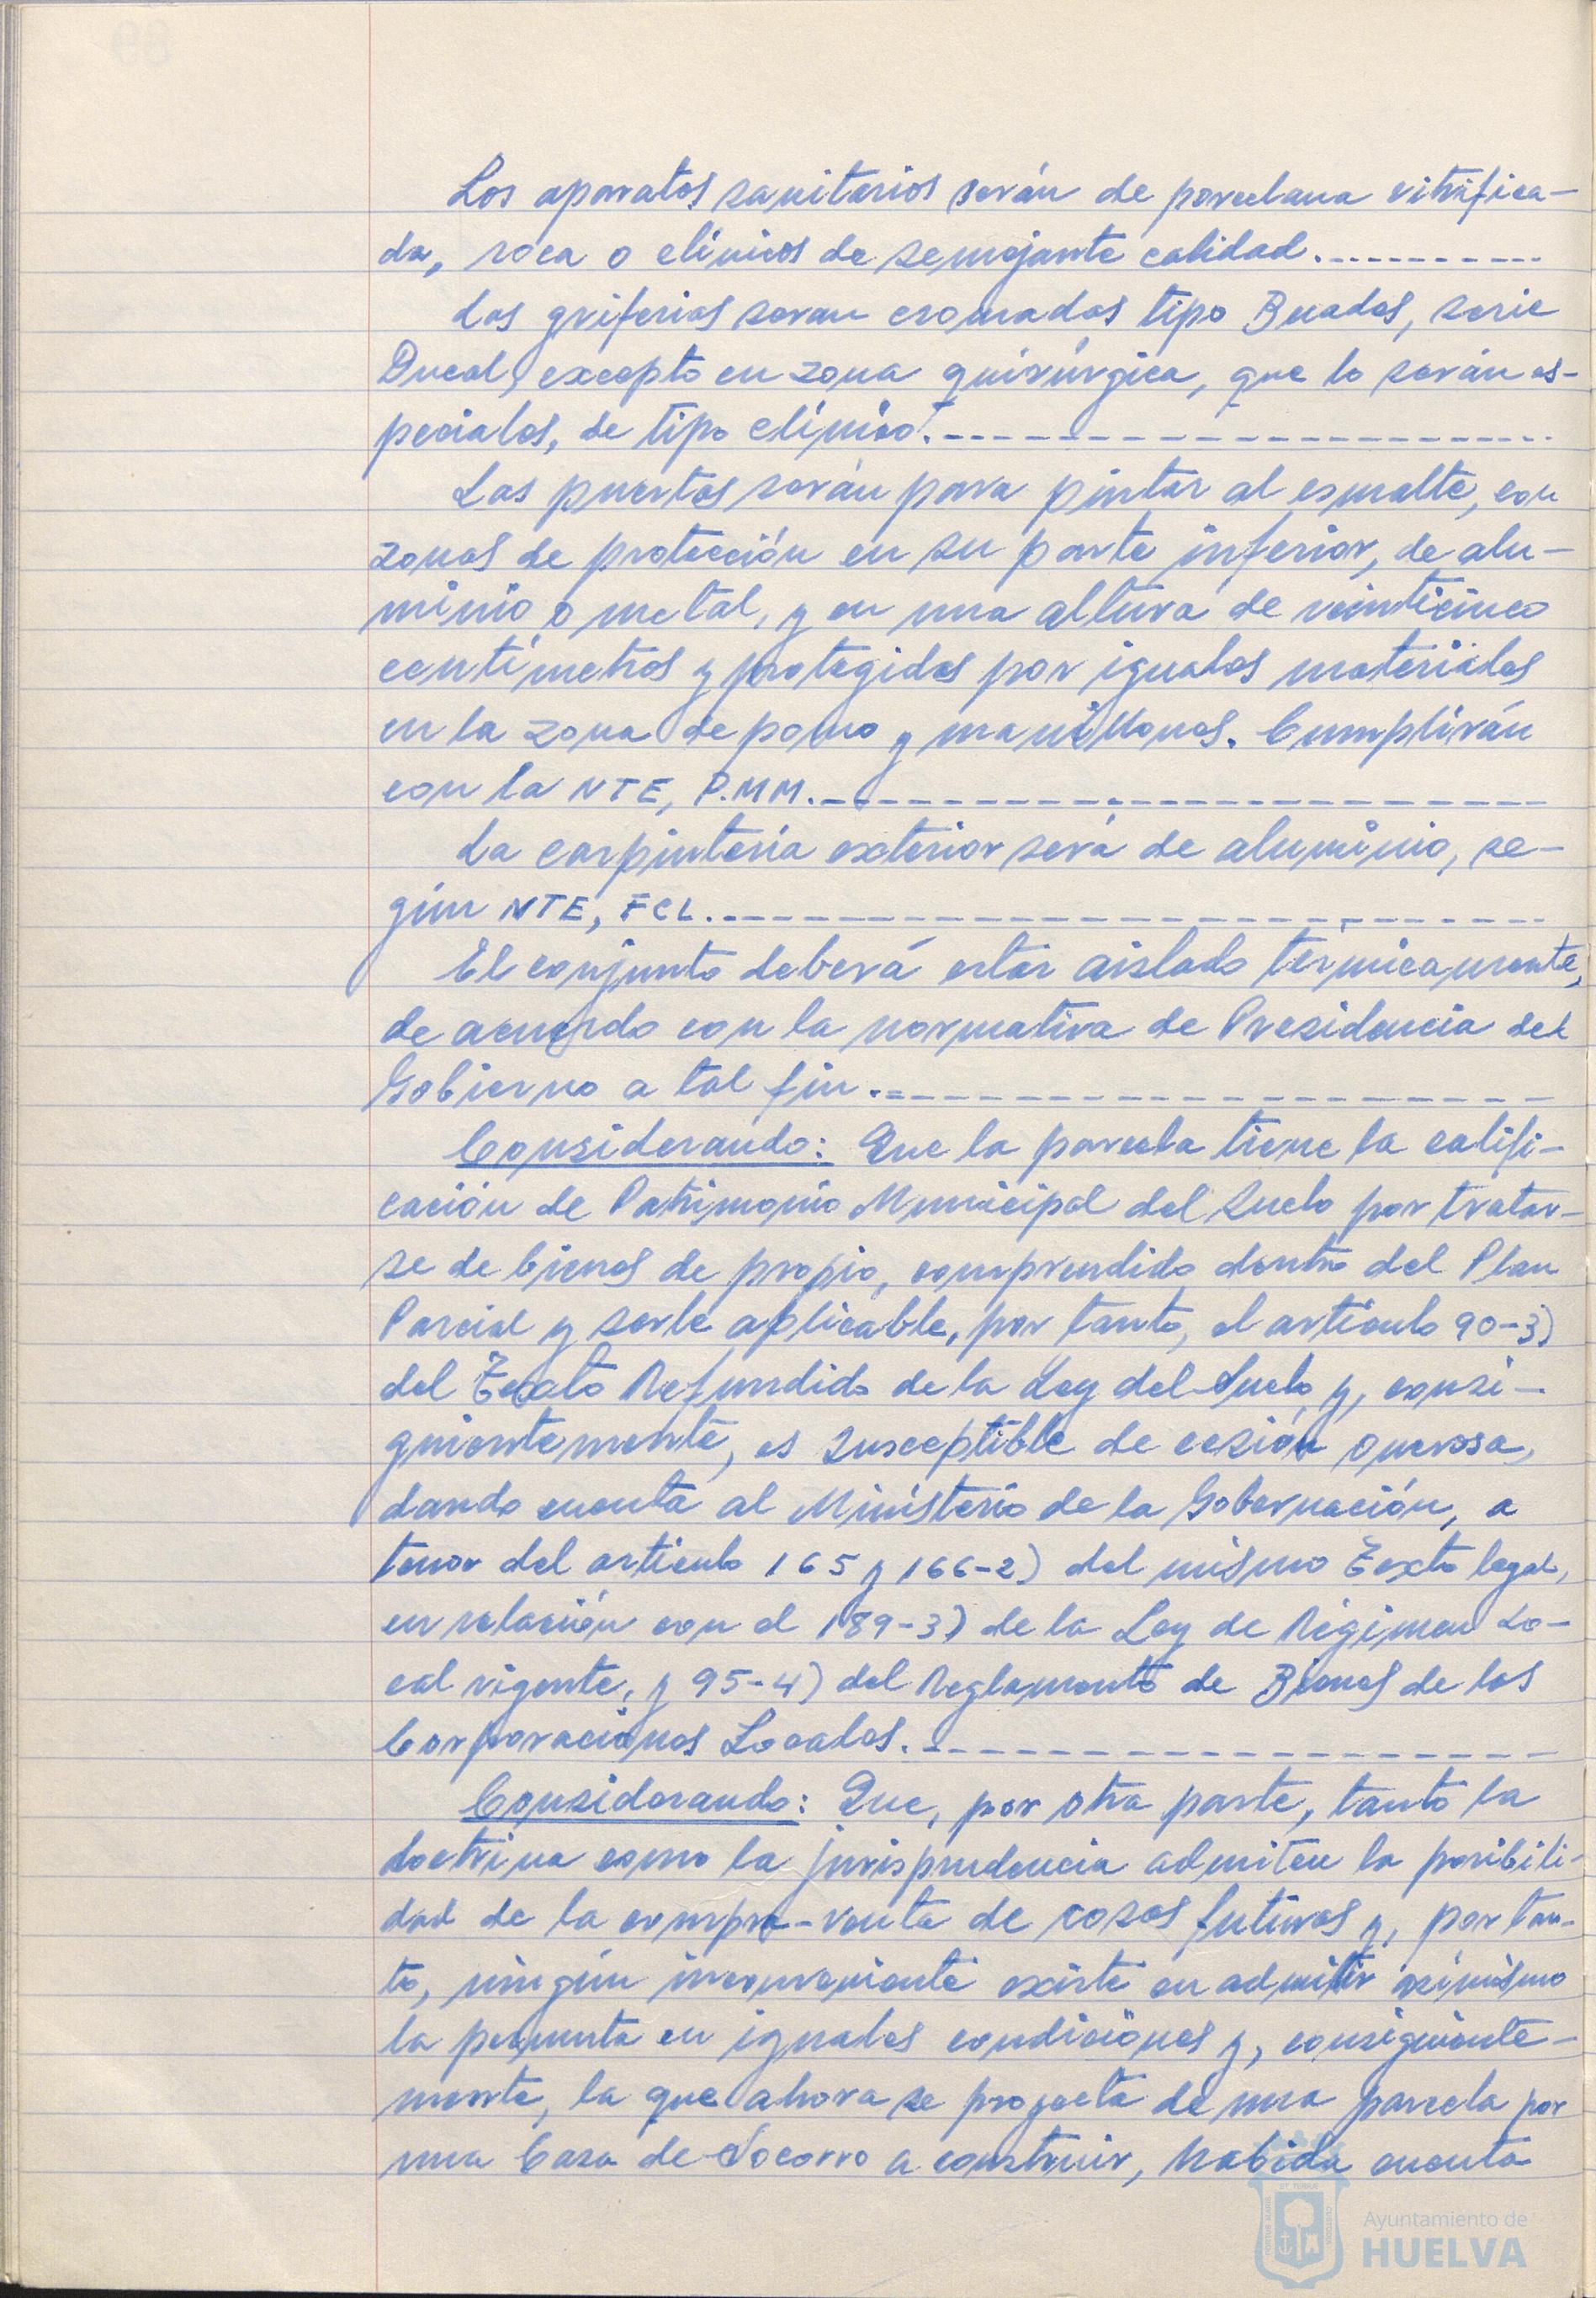 Los aparatos sanitarios serán de porcelana vitrifica-
da, roca o clínicos de semejante calidad.
Las griferias seran cromadas tipo Buades, serie
Ducal, excepto en zona quirúrgica, que lo serán es-
peciales, de tipo clínico.
Las puertas serán para pintar al esmalte, con
zonas de protección en su parte inferior, de alu-
minio o metal, y en una altura de veinticinco
centímetros y protegidas por iguales materiales
en la zona de pomo y manillones. Cumplirán
con la NTE, P.MM.
La carpintería exterior será de aluminio, se-
gún NTE, FCL.
El conjunto deberá estar aislado térmicamente,
de acuerdo con la normativa de Presidencia del
Gobierno a tal fin.
Considerando: Que la parcela tiene la califi-
cación de Patrimonio Municipal del Suelo por tratar-
se de bienes de propio, comprendido dentro del Plan
Parcial y serle aplicable, por tanto, el artículo 90-3)
del Texto Refundido de la Ley del Suelo y, consi-
guientemente, es susceptible de cesión onerosa,
dando cuenta al Ministerio de la Gobernación, a
tenor del articulo 165 y 166-2) del mismo Texto legal,
en relación con el 189-3) de la Ley de Régimen Lo-
cal vigente, y 95-4) del Reglamento de Bienes de las
Corporaciones Locales.
Considerando: Que, por otra parte, tanto la
doctrina como la jurisprudencia admiten la posibili-
dad de la compra-venta de cosas futuras y, por tan-
to, ningún inconveniente existe en admitir asimismo
la permuta en iguales condiciones y, consiguiente-
mente, la que ahora se proyecta de una parcela por
una Casa de Socorro a construir, habida cuenta
Ayuntamiento de
HUELVA